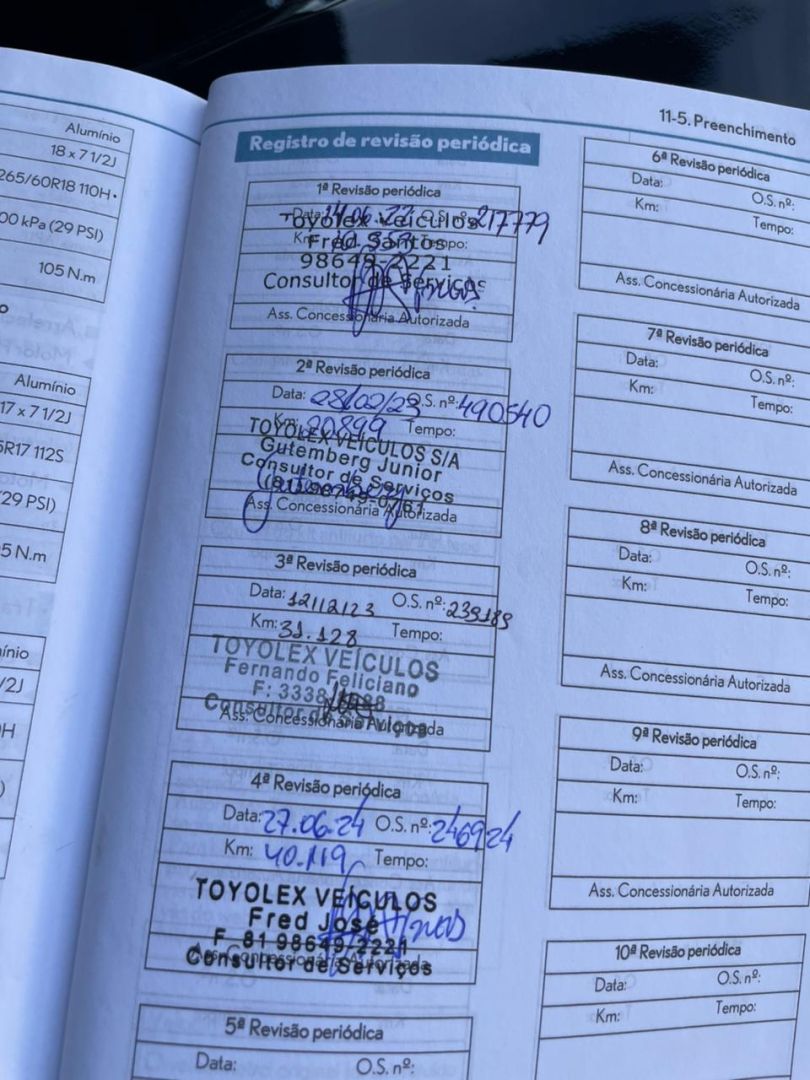 Alumínio
18 x 7 1/2J
265/60R18 110H
00 kPa (29 PSI)
105 N.m
o
Alumínio
17 x 7 1/2J
5R17 112S
(29 PSI)
5 N.m
ínio
/2J
0H
)
11-5. Preenchimento
Registro de revisão periódica
1ª Revisão periódica
Data: 14.06.22 O.S. nº: 217779
Toyolex Veículos
Km: Tempo:
Fred Santos
98649-2221
Consultor de Serviços
Ass. Concessionária Autorizada
2ª Revisão periódica
Data: 28/02/23 O.S. nº: 490540
Km: 20899 Tempo:
TOYOLEX VEÍCULOS S/A
Gutemberg Junior
Consultor de Serviços
Ass. Concessionária Autorizada
3ª Revisão periódica
Data: 12/12/23 O.S. nº: 239189
Km: 31.128 Tempo:
TOYOLEX VEÍCULOS
Fernando Feliciano
Consultor de Serviços
Ass. Concessionária Autorizada
4ª Revisão periódica
Data: 27.06.24 O.S. nº: 246924
Km: 40.119 Tempo:
TOYOLEX VEÍCULOS
Fred José
F. 81 98649/2221
Ass. Concessionária Autorizada
Consultor de Serviços
5ª Revisão periódica
Data: O.S. nº:
6ª Revisão periódica
Data: O.S. nº:
Km: Tempo:
Ass. Concessionária Autorizada
7ª Revisão periódica
Data: O.S. nº:
Km: Tempo:
Ass. Concessionária Autorizada
8ª Revisão periódica
Data: O.S. nº:
Km: Tempo:
Ass. Concessionária Autorizada
9ª Revisão periódica
Data: O.S. nº:
Km: Tempo:
Ass. Concessionária Autorizada
10ª Revisão periódica
Data: O.S. nº:
Km: Tempo: